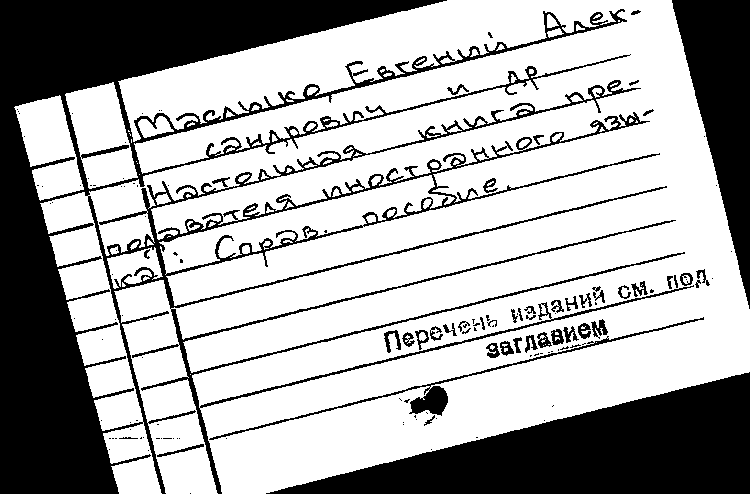 Маслыко, Евгений Алек-
сандрович и др.
Настольная книга пре-
подавателя иностранного язы-
ка: Справ. пособие.
Перечень изданий см. под
заглавием